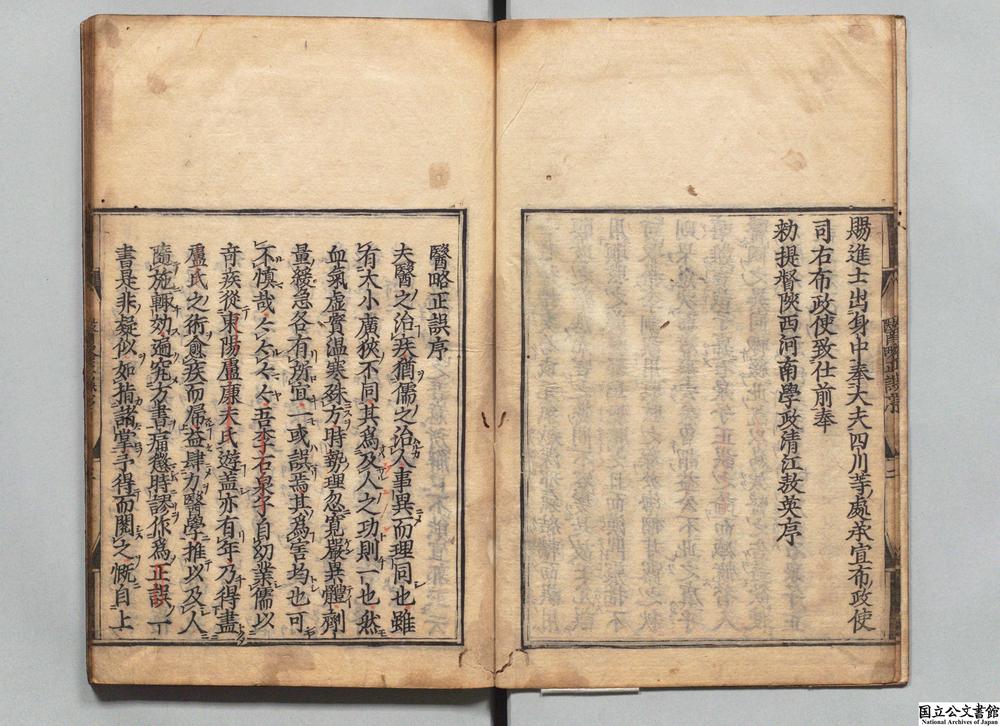 賜進士出身中奉大夫四川等處承宣布政使
司右布政使致仕前奉
勑提督陜西河南學政清江敖英序
醫略正誤序
夫醫之治疾猶儒之治人事異而理同也雖
有大小廣狹不同其為及人之功則一也然
血氣虛實溫寒殊方時勢理忽寬嚴異體劑
量緩急各有所宜一或誤焉其為害均也可
不慎哉々々々々吾李石泉子自幼業儒以
竒疾從東陽盧康夫氏遊盖亦有年乃得盡
盧氏之術愈疾而歸益肆力醫學推以及人
隨施輙効遍究方書痛懲時謬作為正誤一
書是非疑似如指諸掌予得而閱之慨自上
國立公文書館
National Archives of Japan